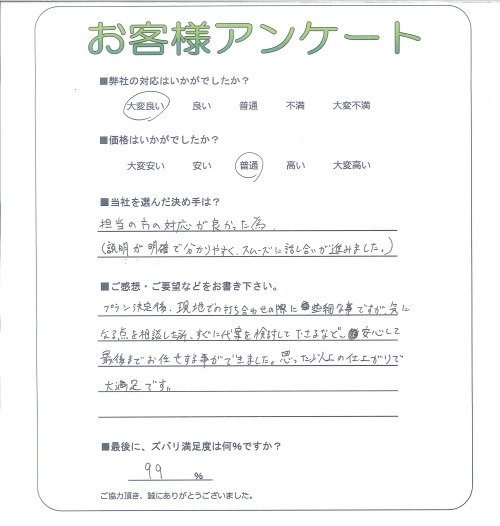 お客様アンケート
■弊社の対応はいかがでしたか？
大変良い 良い 普通 不満 大変不満
■価格はいかがでしたか？
大変安い 安い 普通 高い 大変高い
■当社を選んだ決め手は？
担当の方の対応が良かった為.
(説明が明確で分かりやすく、スムーズに話し合いが進みました。)
■ご感想・ご要望などをお書き下さい。
プラン決定後、現地での打ち合わせの際に些細な事ですが、気に
なる点を相談した所、すぐに代案を検討して下さるなど、安心して
最後までお任せする事ができました。思った以上の仕上がりで
大満足です。
■最後に、ズバリ満足度は何％ですか？
99 %
ご協力頂き、誠にありがとうございました。